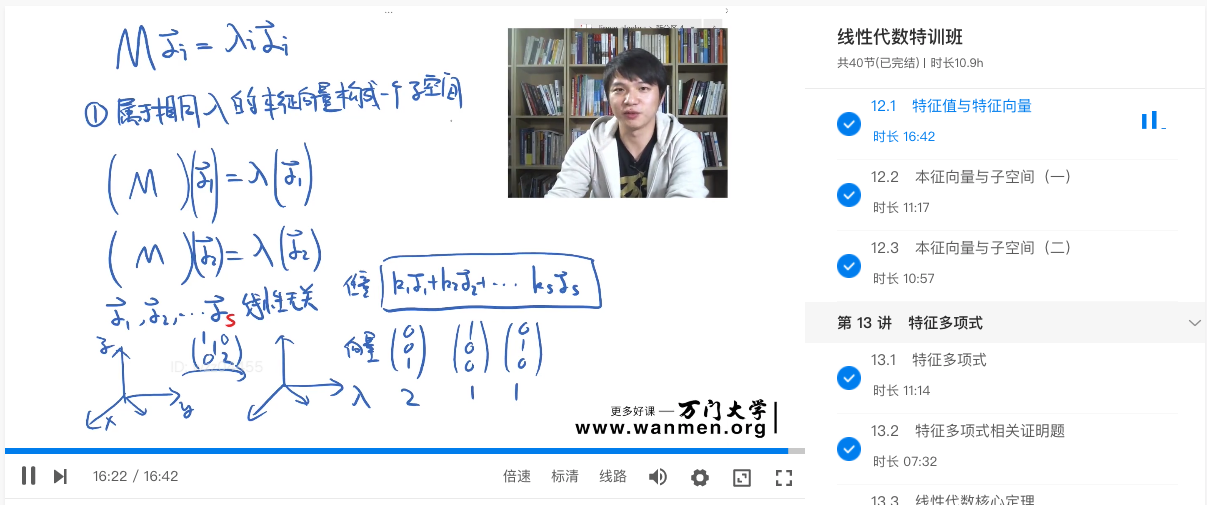 M α⃗i = λi α⃗i
① 属于相同 λ 的本征向量构成一个子空间
( M )(α⃗1) = λ(α⃗1)
( M )(α⃗2) = λ(α⃗2)
α⃗1, α⃗2, ... α⃗s 线性无关
任意 k1α⃗1+k2α⃗2+... ksα⃗s
z
y
x
向量 (0 0 1) (1 0 0) (0 1 0)
λ 2 1 1
更多好课 — 万门大学
www.wanmen.org
16:22 / 16:42
倍速 标清 线路
线性代数特训班
共40节(已完结) | 时长10.9h
12.1 特征值与特征向量
时长 16:42
12.2 本征向量与子空间（一）
时长 11:17
12.3 本征向量与子空间（二）
时长 10:57
第 13 讲 特征多项式
13.1 特征多项式
时长 11:14
13.2 特征多项式相关证明题
时长 07:32
13.3 线性代数核心定理